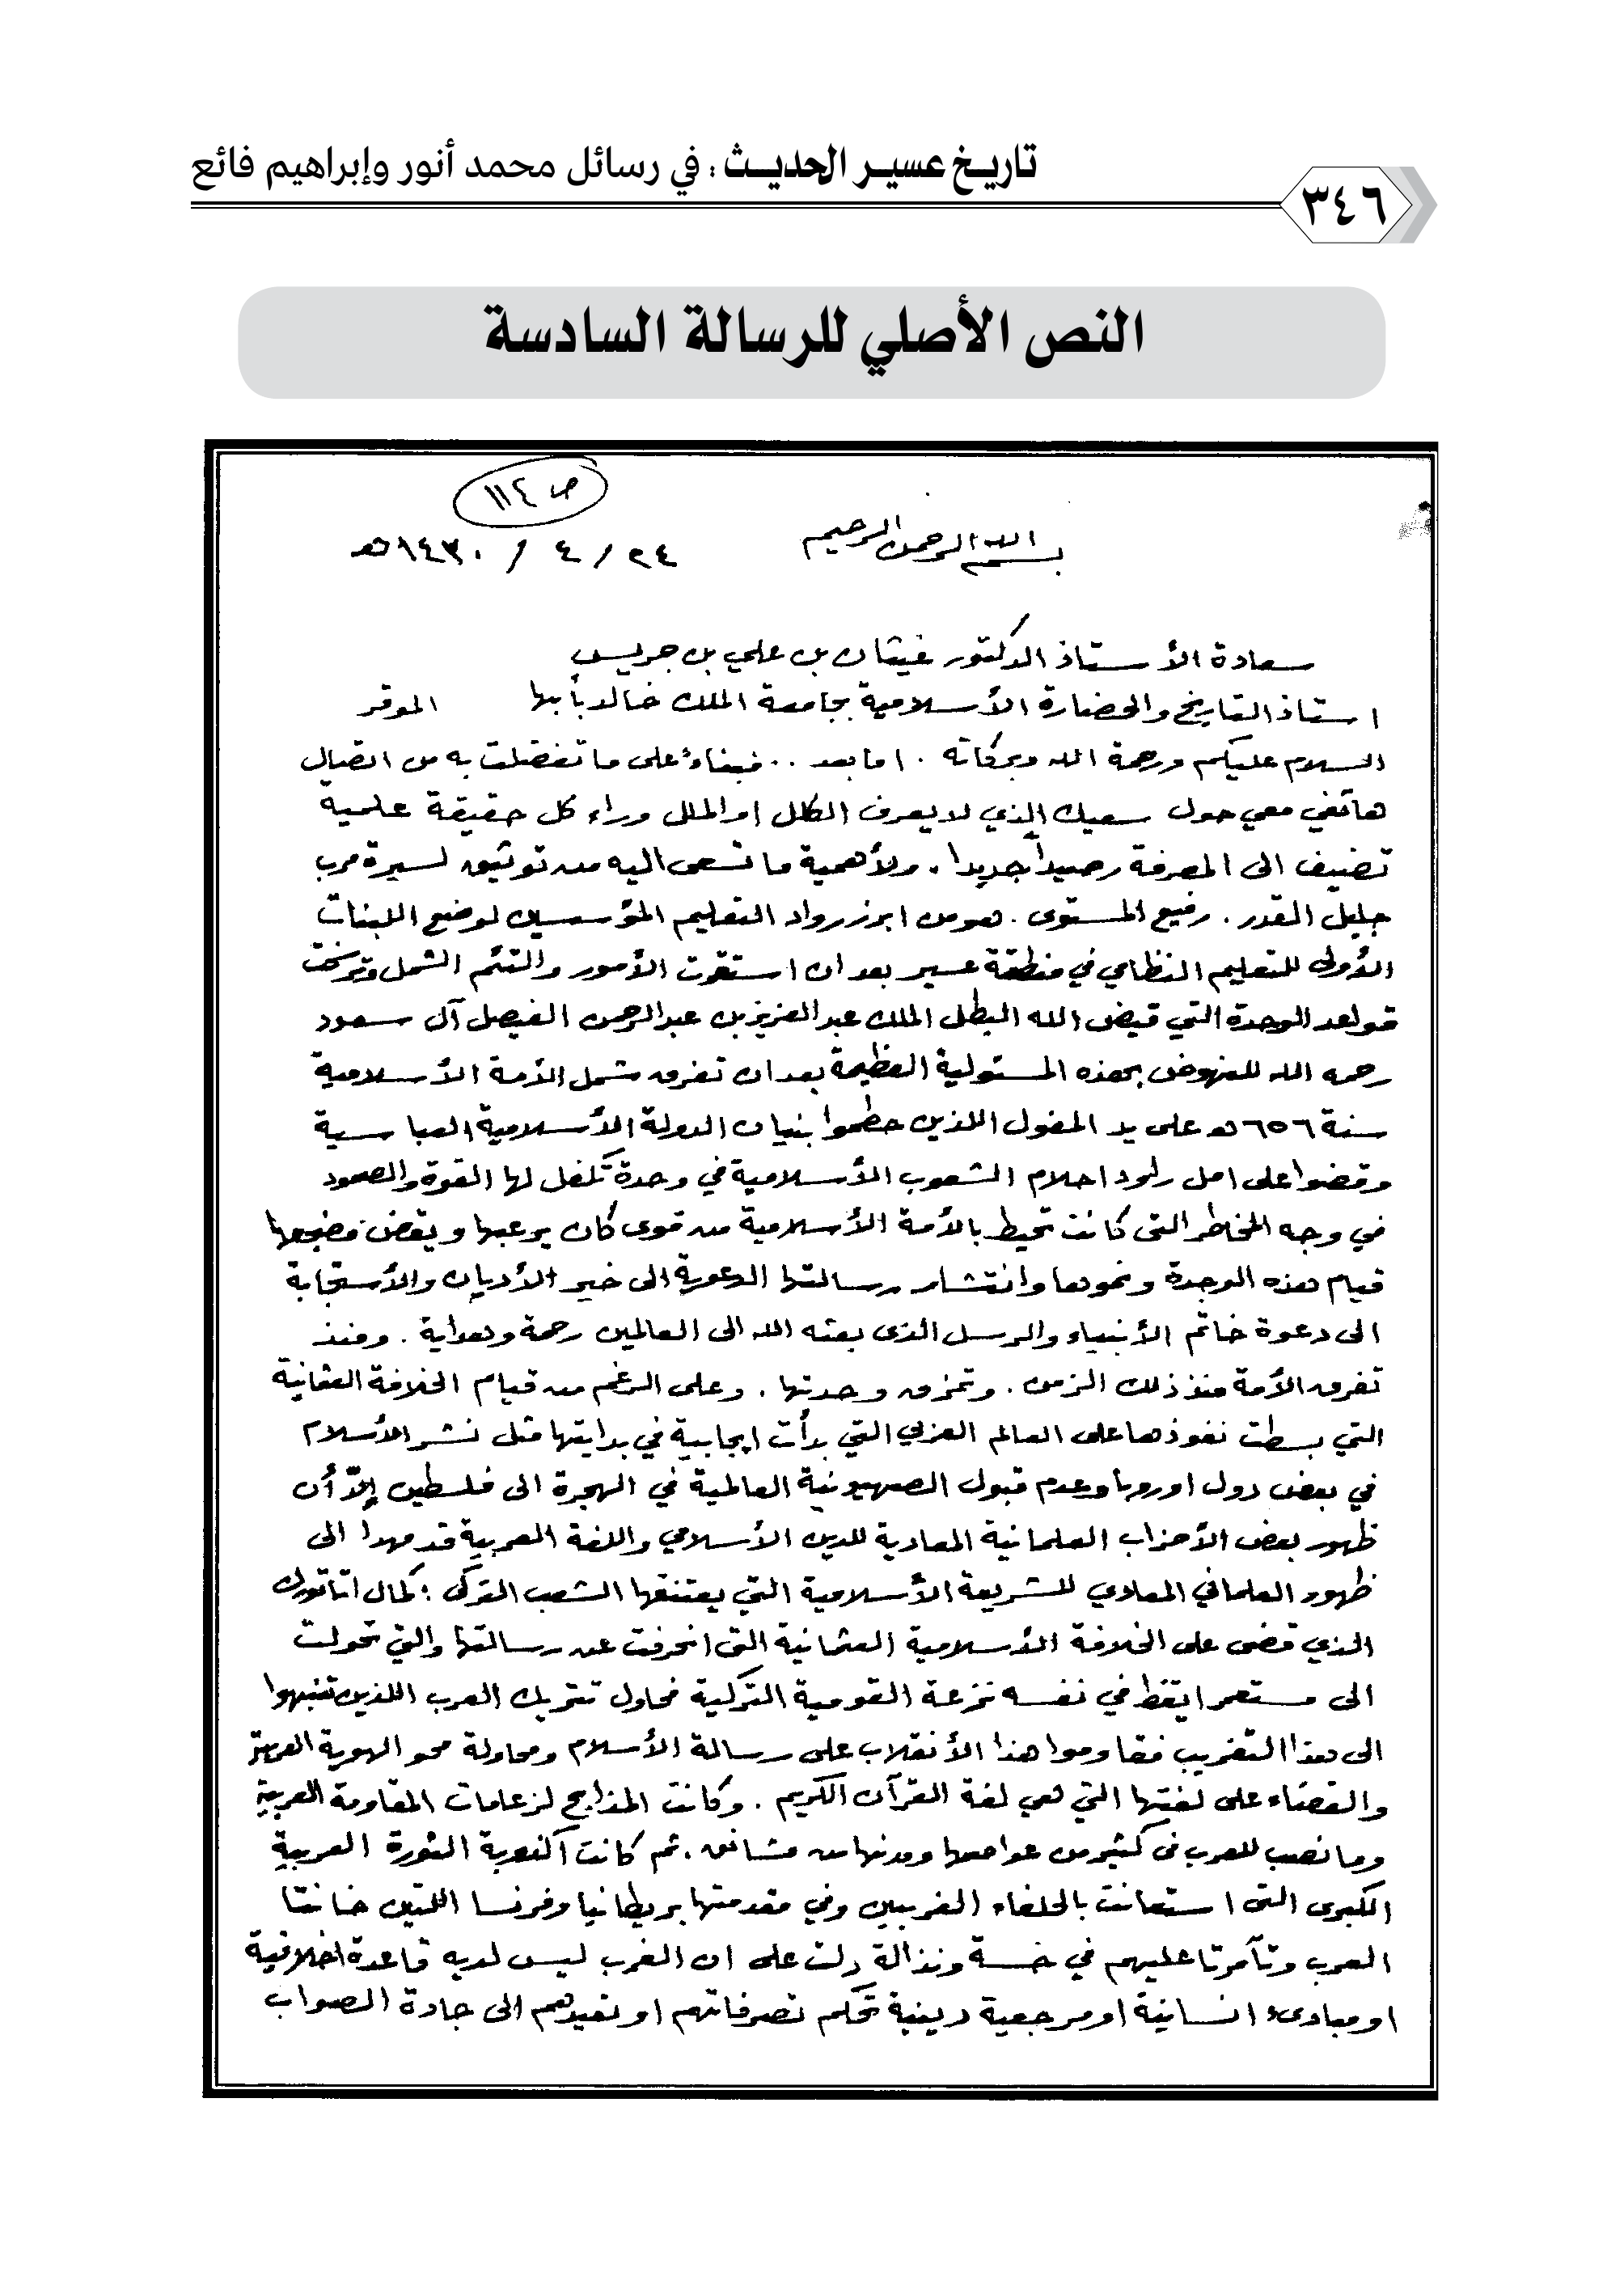 تاريخ عسير الحديث : في رسائل محمد أنور وإبراهيم فائع
٣٤٦
النص الأصلي للرسالة السادسة
ص ١١٤
بسم الله الرحمن الرحيم
٢٤ / ٤ / ١٤٣٠هـ
سعادة الأستاذ الدكتور غيثان بن علي بن جريس
استاذ التاريخ والحضارة الأسلامية بجامعة الملك خالد بأبها الموقر
السلام عليكم ورحمة الله وبركاته . اما بعد .. فبناءً على ما تفضلت به من اتصال
هاتفي معي حول سعيك الذي لا يعرف الكلل او الملل وراء كل حقيقة علمية
تضيف الى المعرفة رصيداً جديدا . ولأهمية ما تسعى اليه من توثيق لسيرة مرب
جليل القدر . رفيع المستوى . هو من ابرز رواد التعليم المؤسسين لوضع اللبنات
الأولى للتعليم النظامي في منطقة عسير بعد ان استقرت الأمور والتئم الشمل وترسخت
قواعد الوحدة التي قيض الله البطل الملك عبد العزيز بن عبد الرحمن الفيصل آل سعود
رحمه الله للنهوض بهذه المسئولية العظيمة بعد ان تفرق شمل الأمة الأسلامية
سنة ٦٥٦هـ على يد المغول اللذين حطموا بنيان الدولة الأسلامية العباسية
وقضوا على امل راود احلام الشعوب الأسلامية في وحدة تكفل لها القوة والصمود
في وجه المخاطر التى كانت تحيط بالأمة الأسلامية من قوى كان يرعبها ويقض مضجعها
قيام هذه الوحدة ونموها وانتشار رسالتها الدعوية الى خير الأديان والأستجابة
الى دعوة خاتم الأنبياء والرسل الذى بعثه الله الى العالمين رحمة وهداية . ومنذ
تفرق الأمة منذ ذلك الزمن . وتمزق وحدتها . وعلى الرغم من قيام الخلافة العثمانية
التي بسطت نفوذها على العالم العربي التي بدأت ايجابية في بدايتها مثل نشر الأسلام
في بعض دول اوروبا وعدم قبول الصهيونية العالمية في الهجرة الى فلسطين إلاّ أن
ظهور بعض الأحزاب العلمانية المعادية للدين الأسلامي واللغة العربية قد مهدا الى
ظهور العلماني المعادي للشريعة الأسلامية التي يعتنقها الشعب التركى ؛ كمال اتاتورك
الذي قضى على الخلافة الأسلامية العثمانية التى انحرفت عن رسالتها والتي تحولت
الى مستعمر ايقظ في نفسه نزعة القومية التركية فحاول تتريك العرب اللذين تنبهوا
الى هذا التغريب فقاوموا هذا الأنقلاب على رسالة الأسلام ومحاولة محو الهوية العربية
والقضاء على لغتها التي هي لغة القرآن الكريم . وكانت المذابح لزعامات المقاومة العربية
وما نصب للعرب فى كثير من عواصمها ومدنها من مشانق . ثم كانت اكذوبة الثورة العربية
الكبرى التى استعانت بالحلفاء الغربيين وفي مقدمتها بريطانيا وفرنسا اللتين خانتا
العرب وتآمرتا عليهم في خسة ونذالة دلت على ان الغرب ليس لديه قاعدة اخلاقية
او مبادىء انسانية او مرجعية دينية تحكم تصرفاتهم او تعيدهم الى جادة الصواب